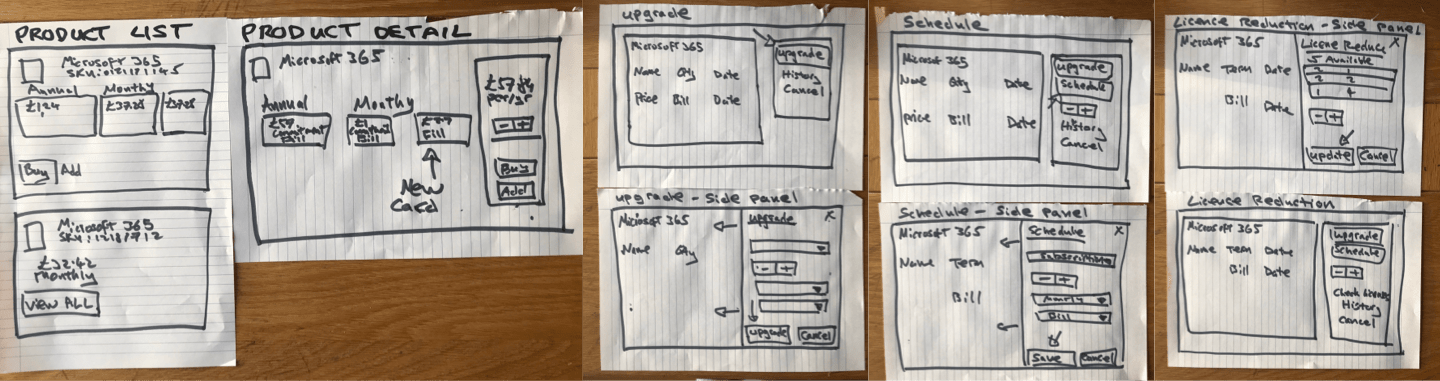 PRODUCT LIST
Microsoft 365
Annual
Monthly
£124
Buy
Add
Microsoft 365
£32.42
monthly
View ALL
PRODUCT DETAIL
Microsoft 365
Annual
Monthly
Bill
Bill
Bill
- +
Buy
Add
New
Card
upgrade
Microsoft 365
Name Qty Date
Price Bill Date
upgrade
History
Cancel
upgrade - Side panel
Microsoft 365
Name Qty
upgrade X
- +
upgrade Cancel
Schedule
Microsoft 365
Name Qty Date
Price Bill Date
upgrade
Schedule
- +
History
Cancel
Schedule - Side panel
Microsoft 365
Name Term
Bill
Schedule X
- +
Bill
Save Cancel
Licence Reduction - Side panel
Microsoft 365
Name Term Date
Bill Date
Licene Reduce X
5 Available
2 2
1 4
- +
update Cancel
Licence Reduction
Microsoft 365
Name Term Date
Bill Date
upgrade
Schedule
- +
History
Cancel